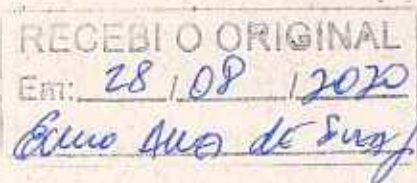 RECEBI O ORIGINAL
Em: 28 / 08 / 2020
de